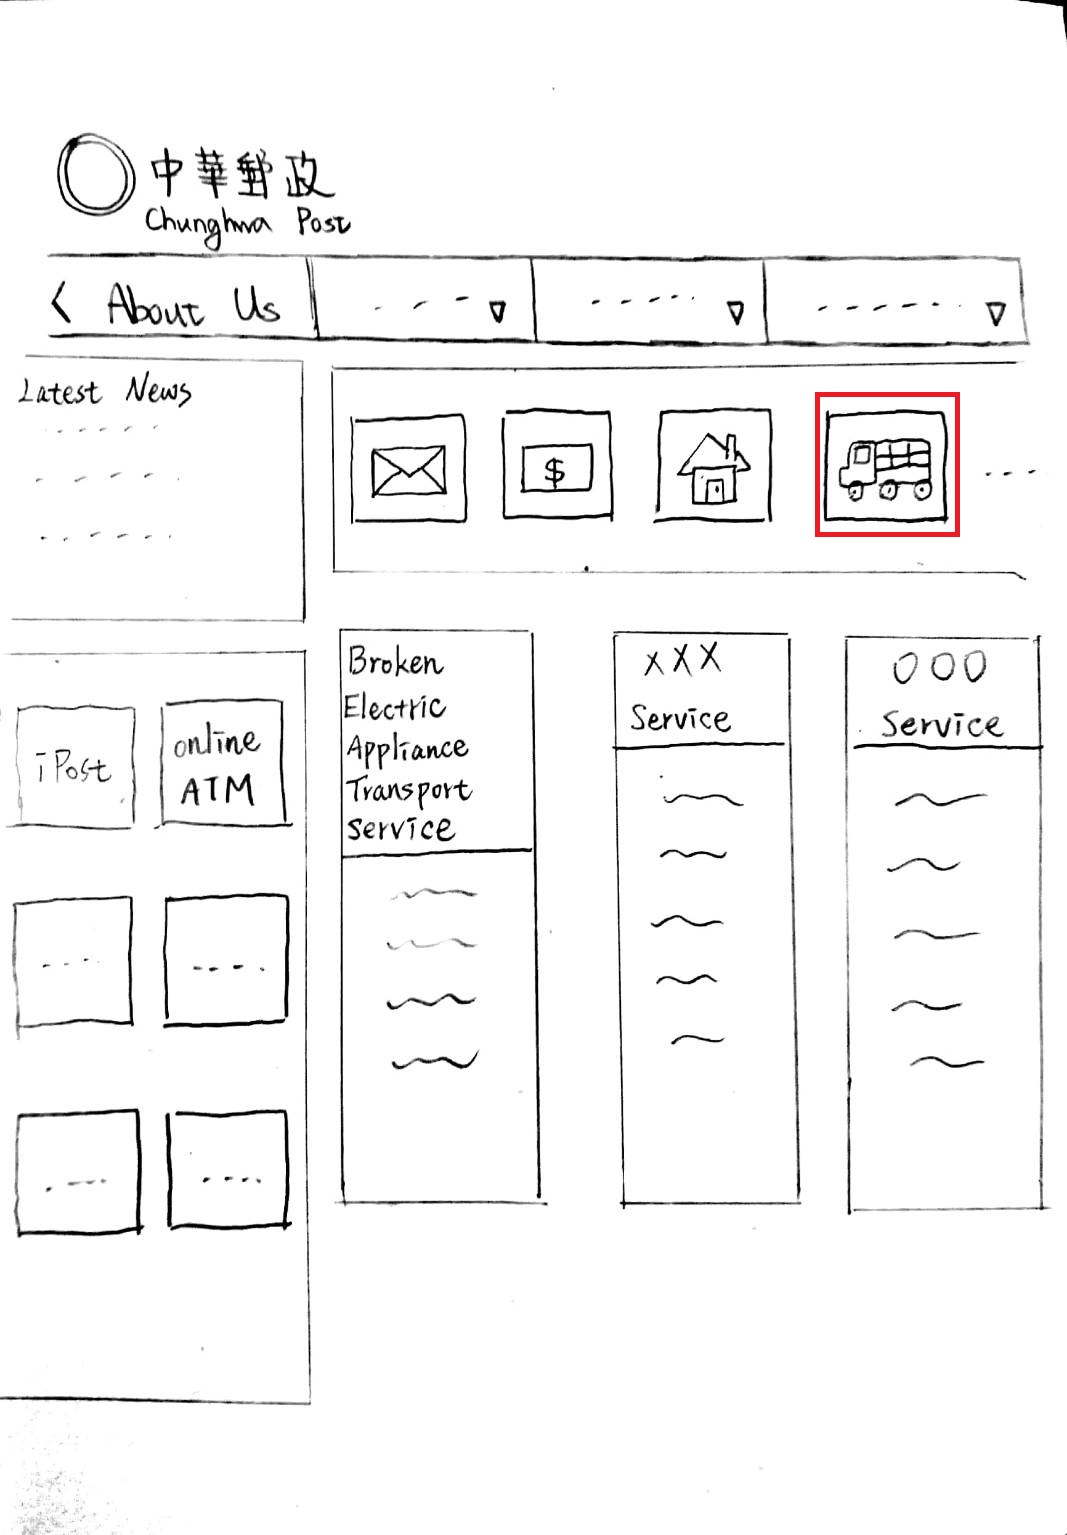 中華郵政
Chunghwa Post
< About Us
Latest News
$
iPost
online
ATM
Broken
Electric
Appliance
Transport
Service
XXX
Service
OOO
Service